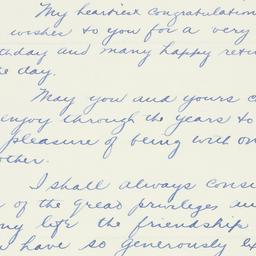 My heartiest congratulation
wishes to you for a very
thday and many happy retu
e day.
May you and yours c
enjoy through the years to
pleasure of being with on
other.
I shall always consi
of the great privileges an
my life the friendship
have so generously ex